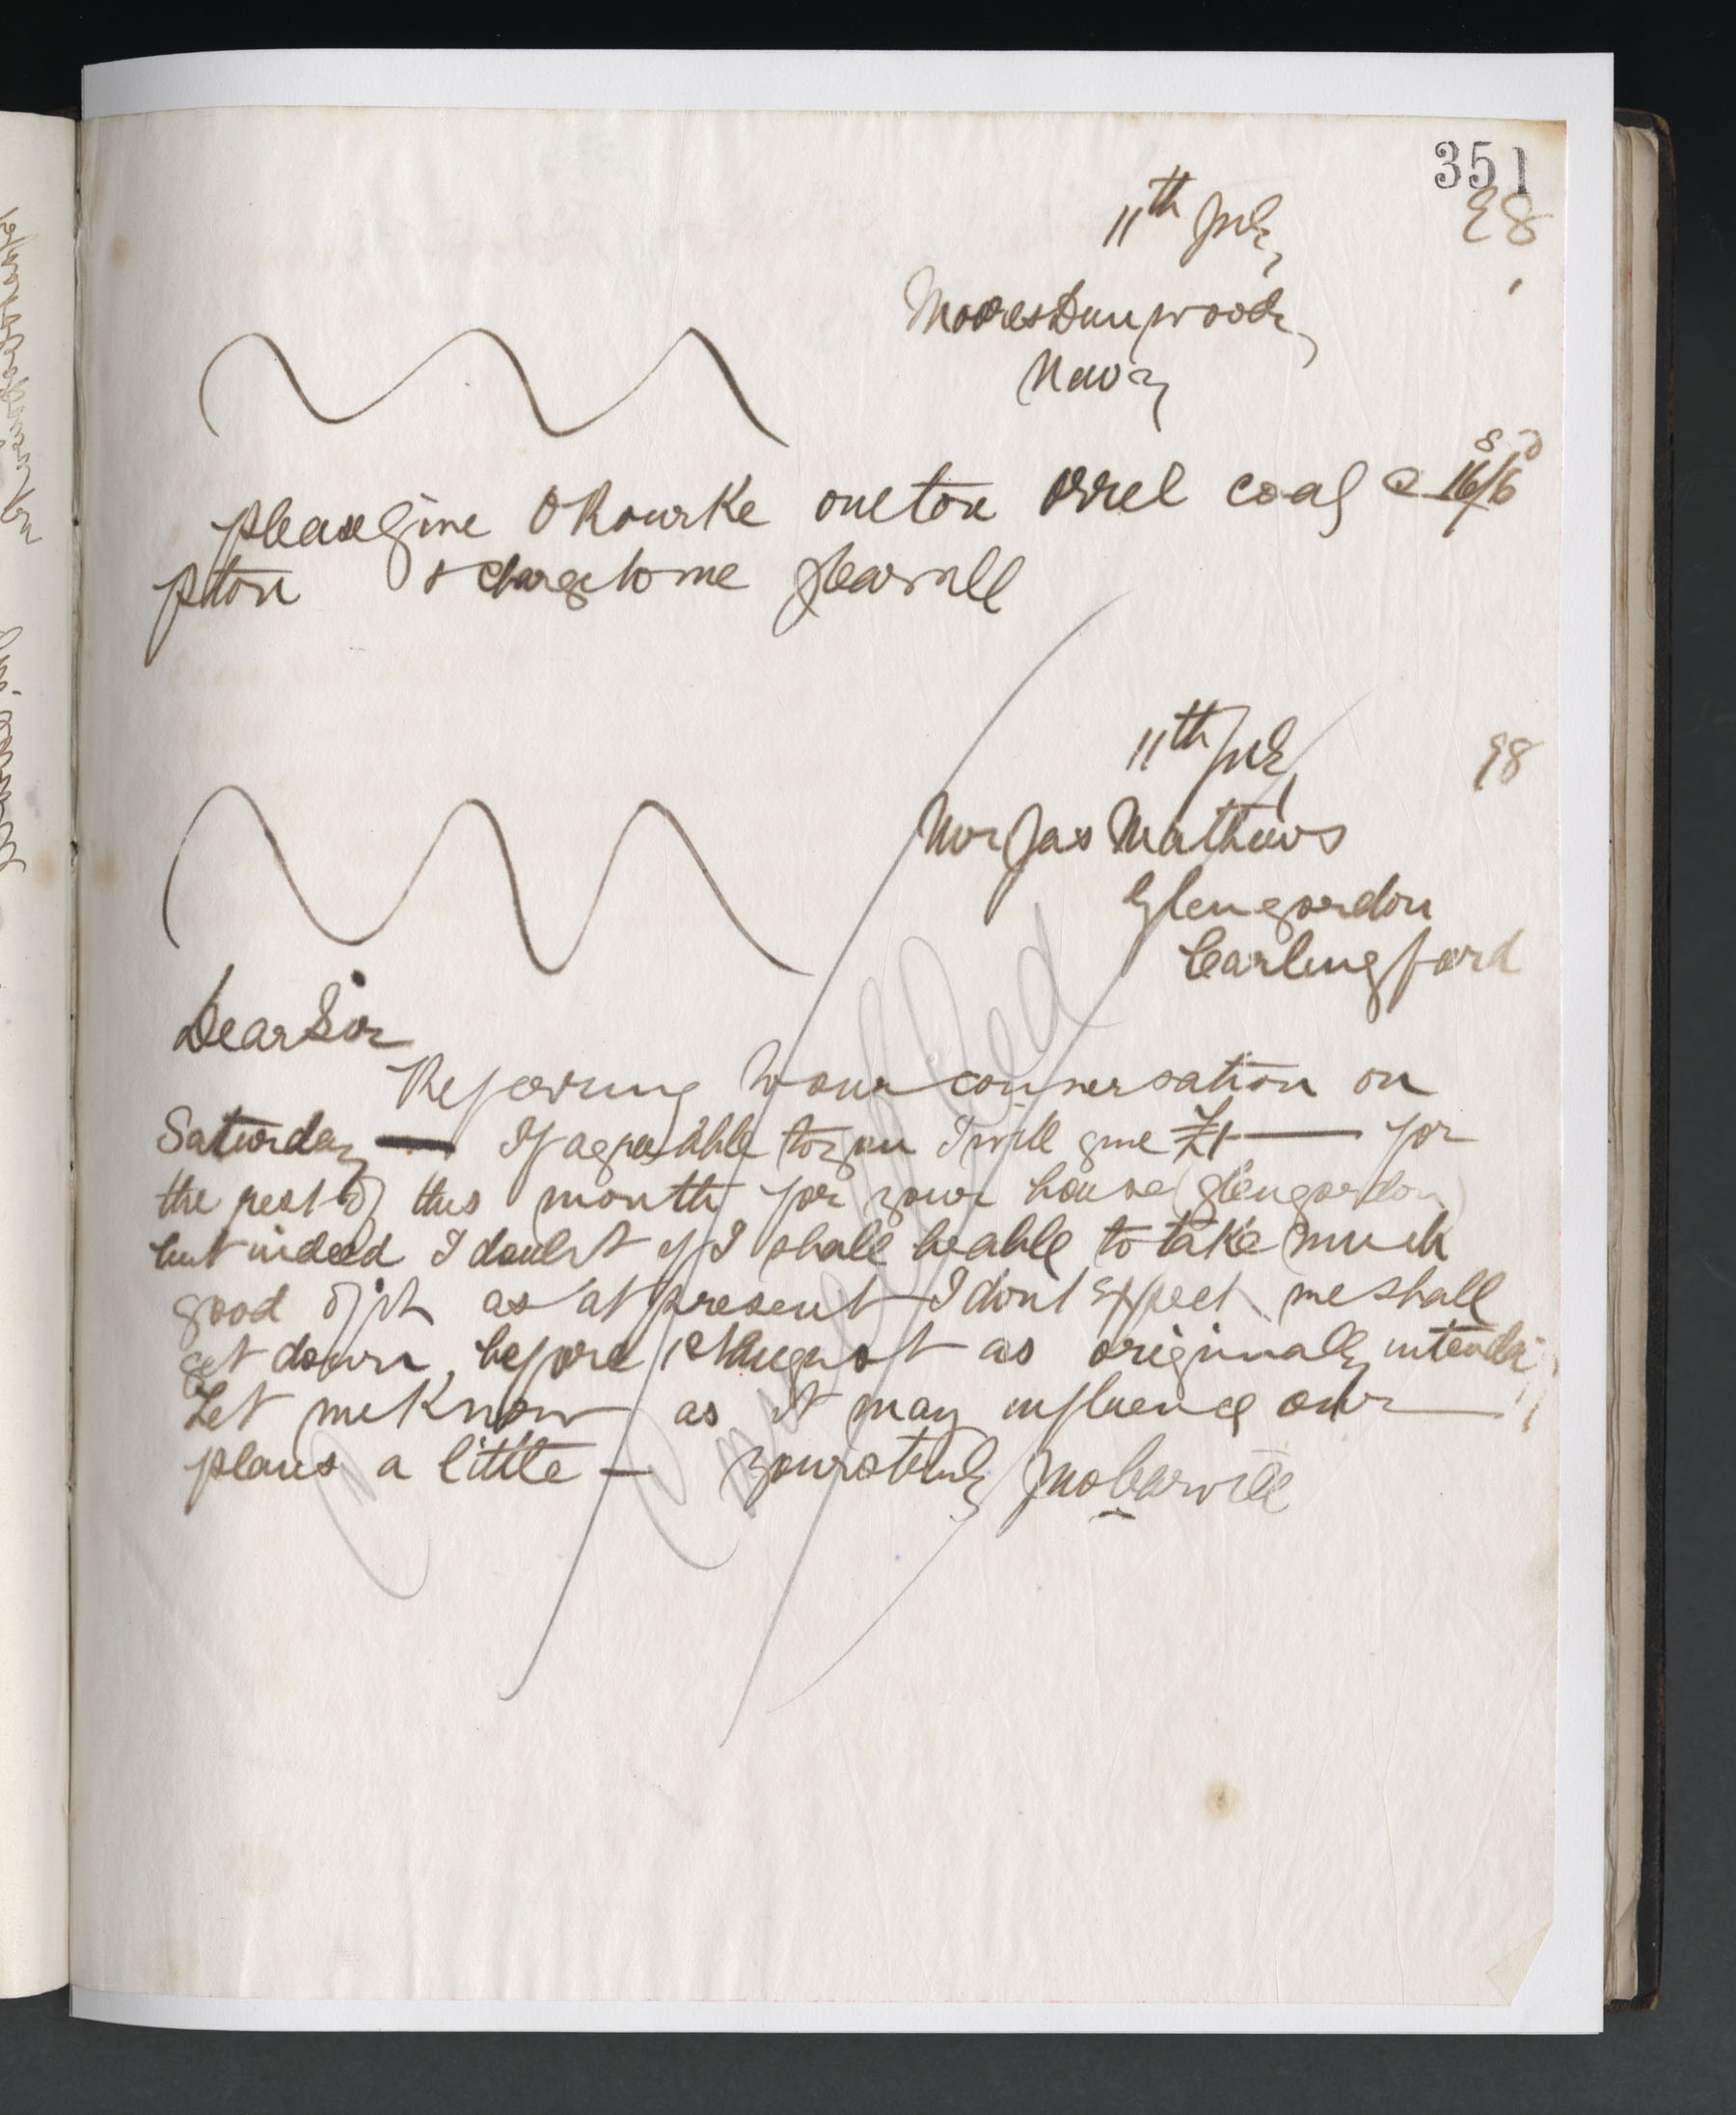 351
11th July 98
Moores Dunwoody
Newry
please give O Rourke one ton Orrel coal @ 16s/6d
p ton & charge to me JCarvill
11th July 98
Mr Jas Mathews
Glengordon
Carlingford
Dear Sir
Referring to our conversation on
Saturday — If agreeable to you I will give £1 — for
the rest of this month for your house (Glengordon)
but indeed I doubt if I shall be able to take much
good of it as at present I dont expect we shall
get down before 1st August as originally intended
Let me know as it may influence our
plans a little — yours truly Jno Carvill
Cancelled